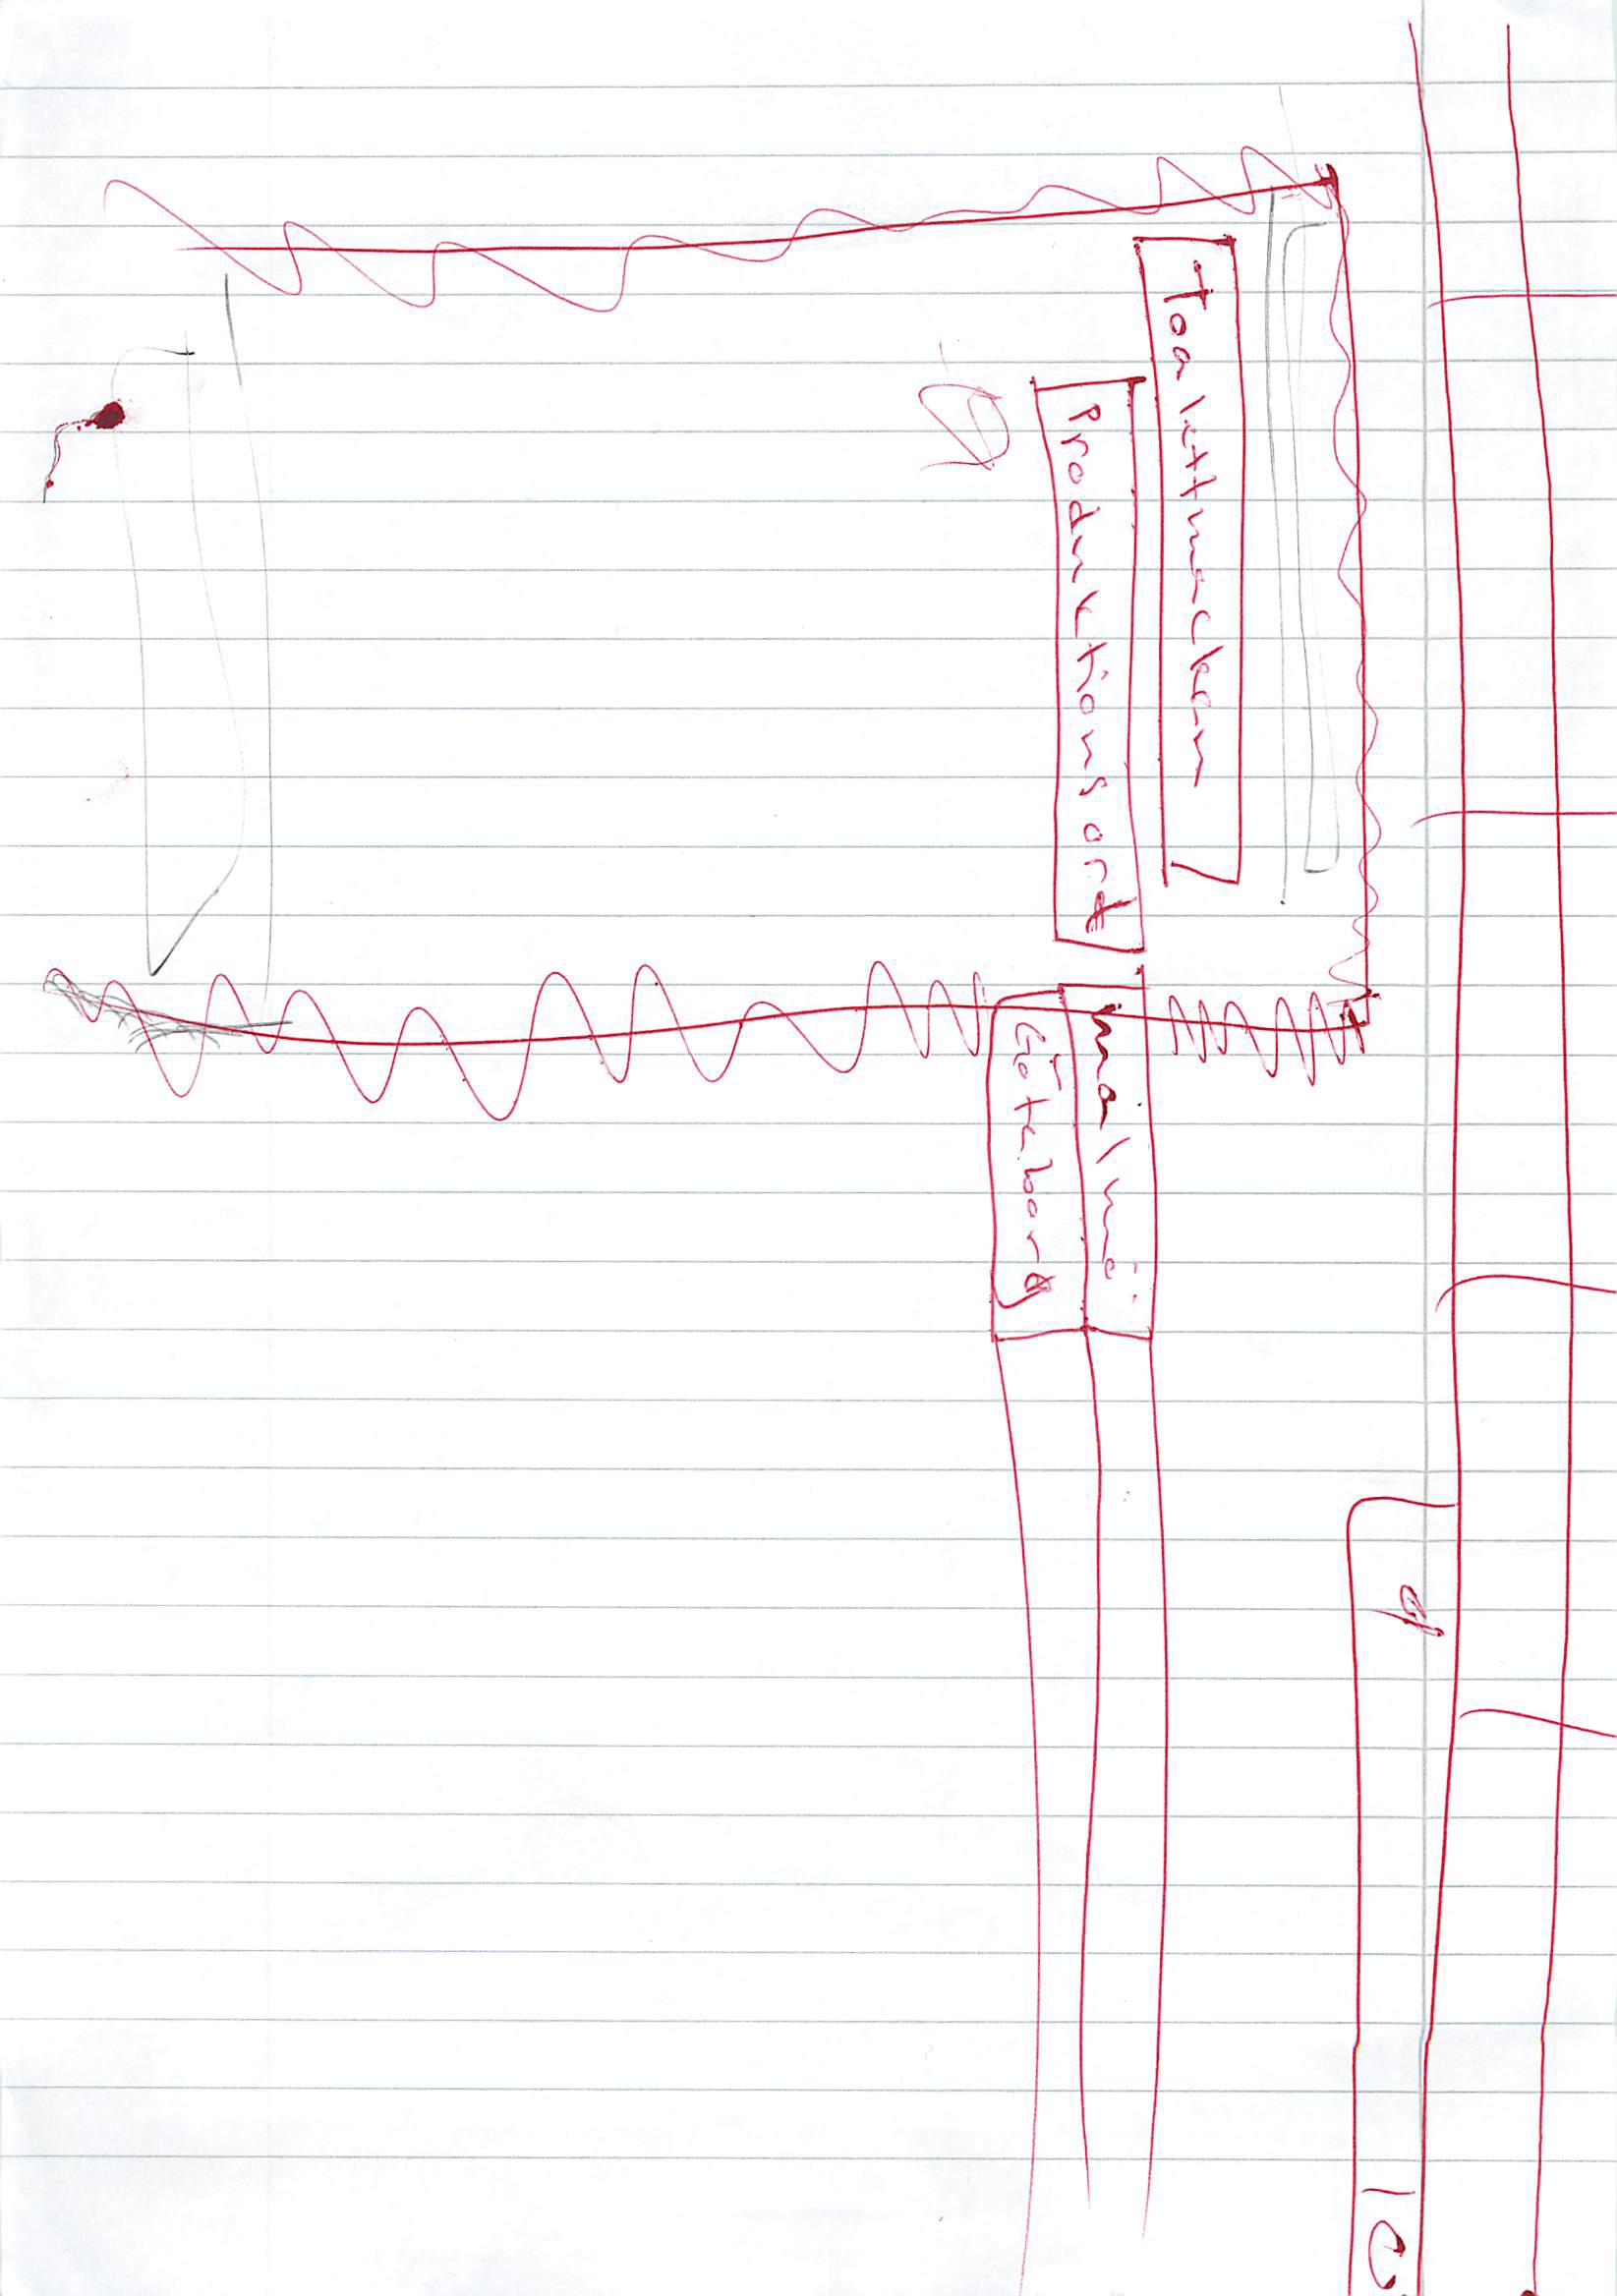 Toalettmacken
Produktionsort
malmö
Göteborg
10